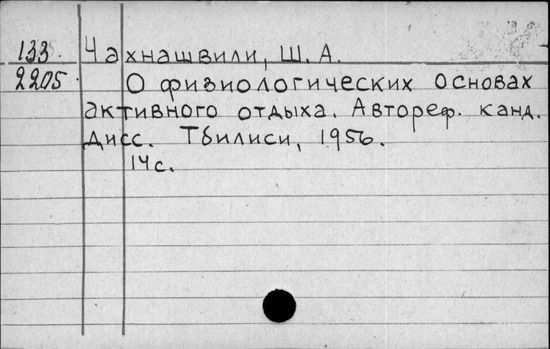 133. Чахнашвили, Ш. А.
2205. О физиологических основах
активного отдыха. Автореф. канд.
дисс. Тбилиси, 1956.
14с.